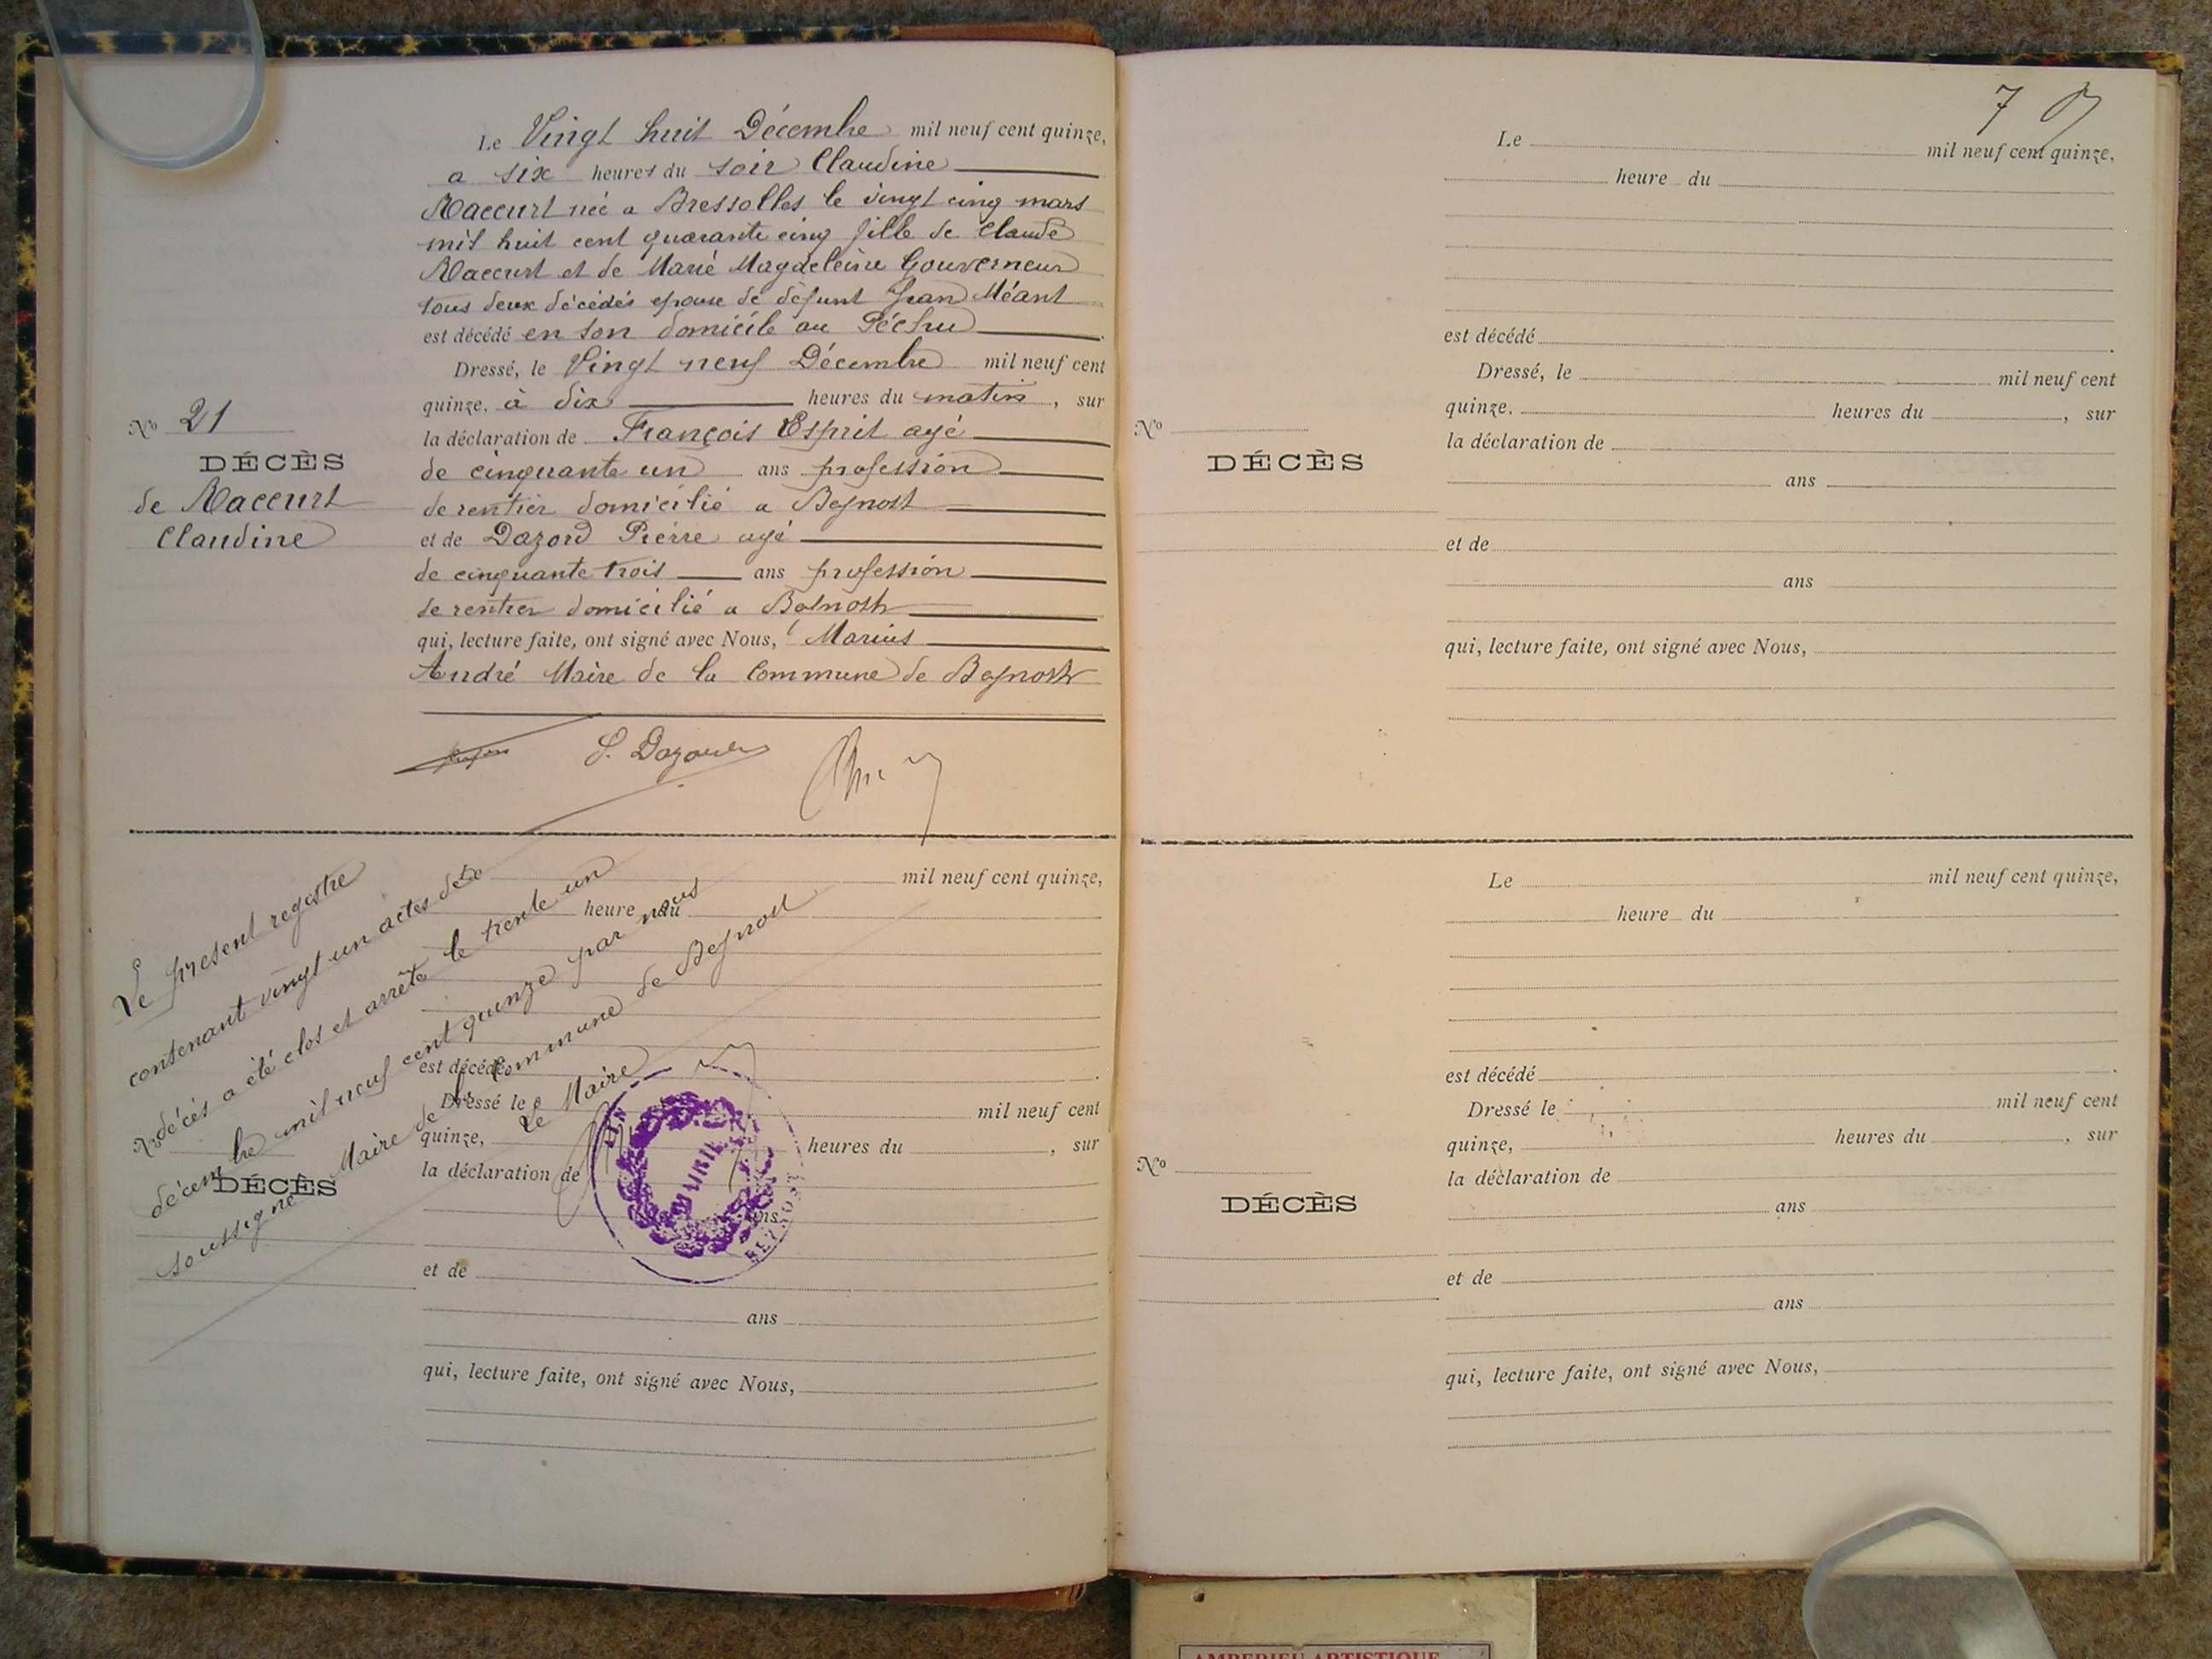 Le Vingt huit Décembre mil neuf cent quinze,
a six heures du soir Claudine
Raccurt née a Bressolles le vingt cinq mars
mil huit cent quarante cinq fille de Claude
Raccurt et de Marie Magdeleine Gouverneur
tous deux décédés epouse de défunt Jean Méant
est décédé en son domicile au Péchu
Dressé, le Vingt neuf Décembre mil neuf cent
quinze. à dix heures du matin, sur
la déclaration de François Esprit agé
de cinquante un ans profession
de rentier domicilié a Beynost
et de Dazord Pierre agé
de cinquante trois ans profession
de rentier domicilié a Beynost
qui, lecture faite, ont signé avec Nous, Marius
André Maire de la Commune de Beynost
No 21
DÉCÈS
de Raccurt
Claudine
Le présent registre
contenant vingt un actes de
décès a été clos et arrêté le trente un
décembre mil neuf cent quinze par nous
soussigné Maire de la Commune de Beynost
Le Maire
mil neuf cent quinze,
heure du
est décédé
Dressé le mil neuf cent
quinze, heures du , sur
la déclaration de
ans
et de
ans
qui, lecture faite, ont signé avec Nous,
No
DÉCÈS
MAIRIE
BEYNOST
AIN
7
Le mil neuf cent quinze.
heure du
est décédé
Dressé, le mil neuf cent
quinze. heures du , sur
la déclaration de
ans
et de
ans
qui, lecture faite, ont signé avec Nous,
No
DÉCÈS
Le mil neuf cent quinze,
heure du
est décédé
Dressé le mil neuf cent
quinze, heures du , sur
la déclaration de
ans
et de
ans
qui, lecture faite, ont signé avec Nous,
No
DÉCÈS
AMBERIEU ARTISTIQUE